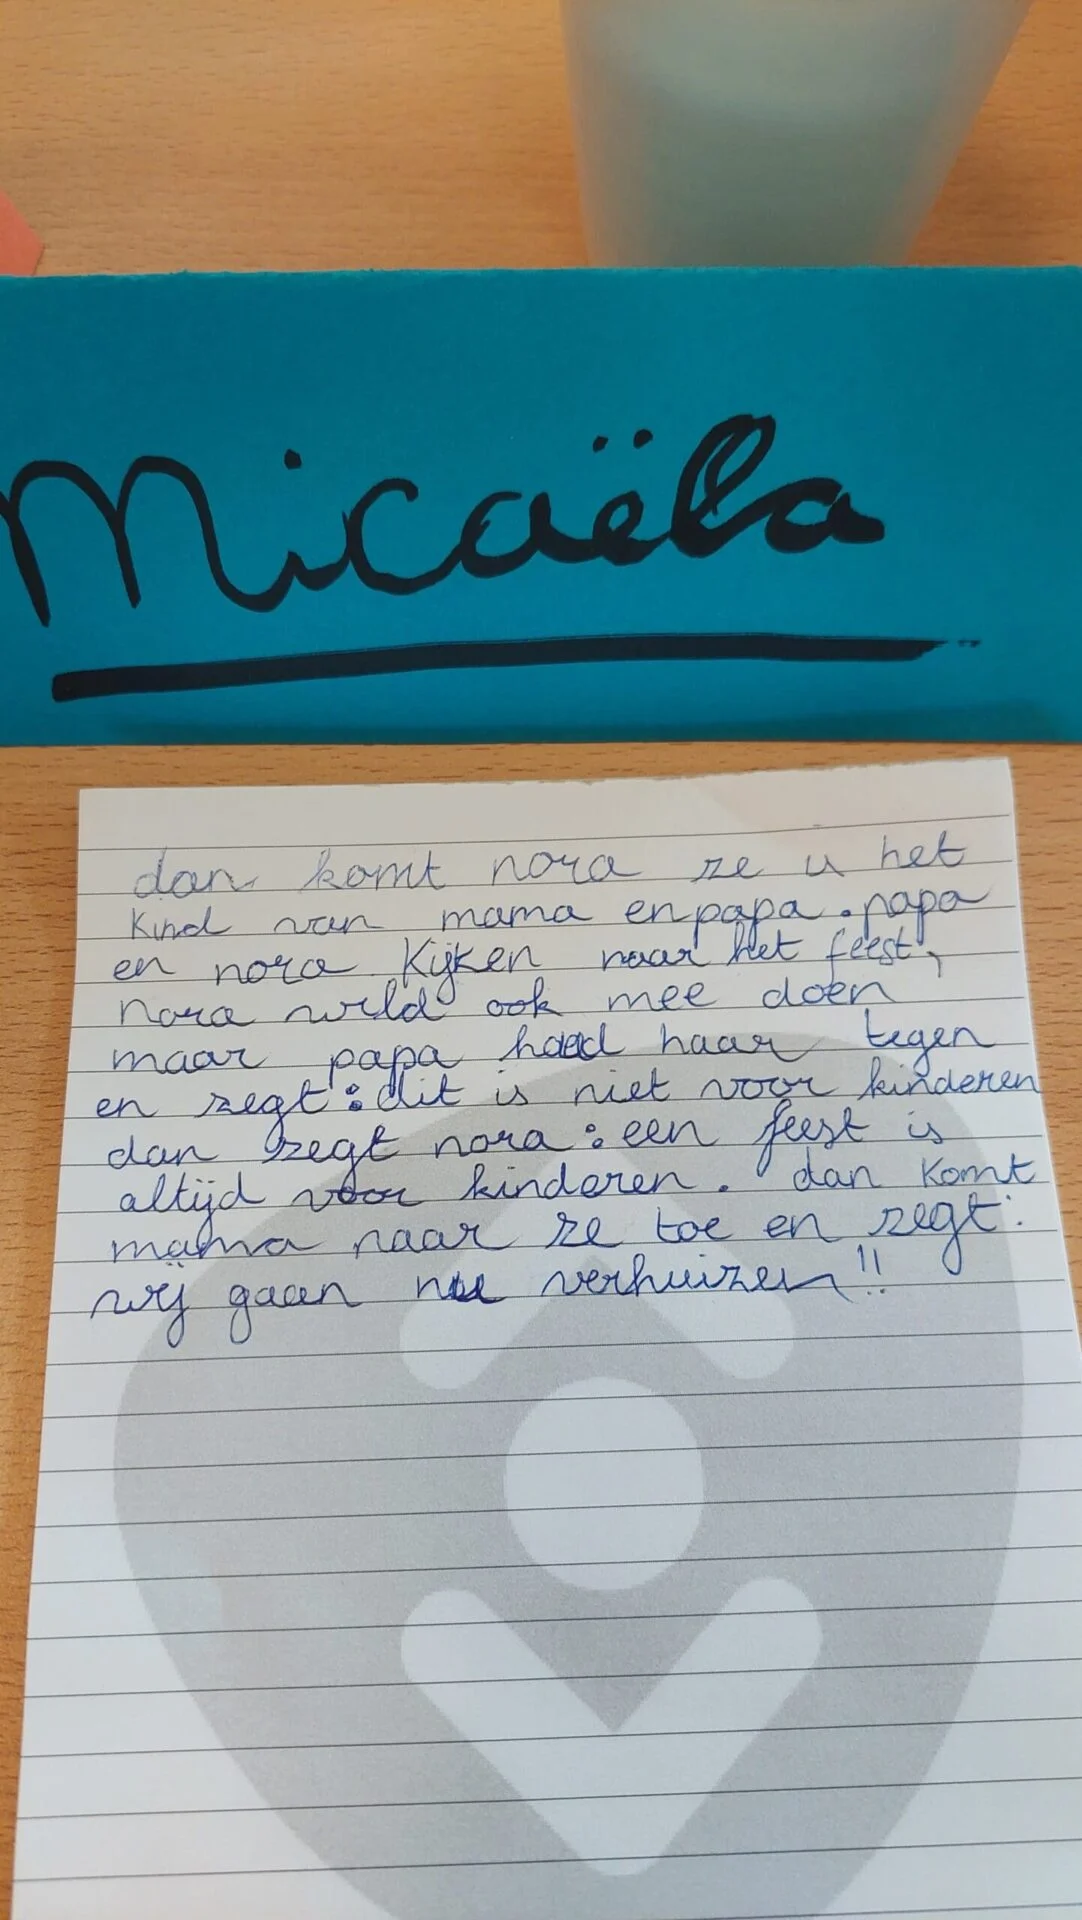 Micaëla
dan komt nora ze u het
kind van mama en papa. papa
en nora kijken naar het feest,
nora wild ook mee doen
maar papa haed haar tegen
en zegt: dit is niet voor kinderen
dan zegt nora: een feest is
altijd voor kinderen. dan komt
mama naar ze toe en zegt:
wij gaan nu verhuizen!!